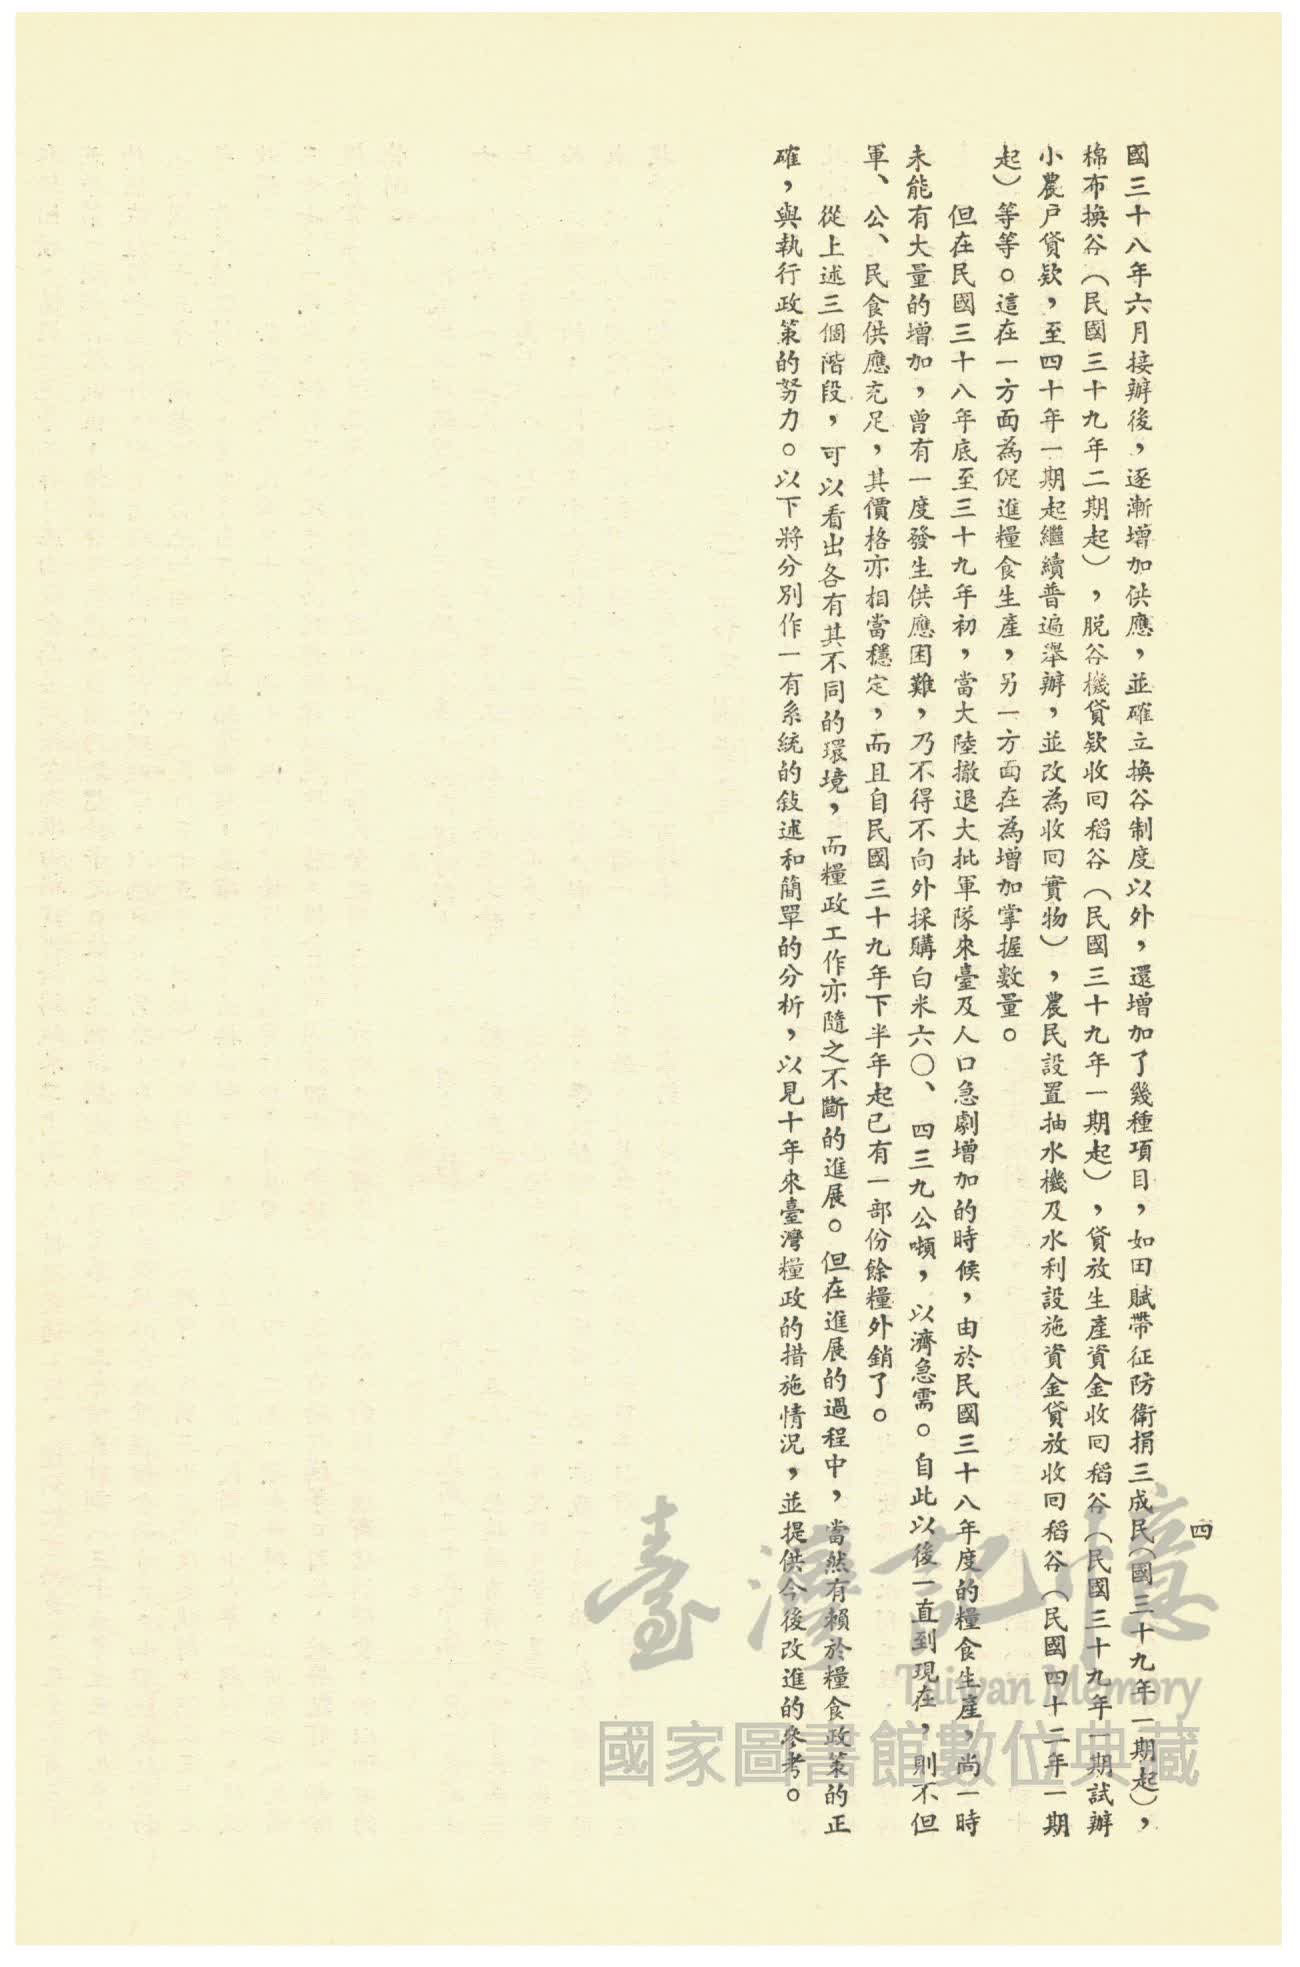 四
國三十八年六月接辦後，逐漸增加供應，並確立換谷制度以外，還增加了幾種項目，如田賦帶征防衛捐三成民（國三十九年一期起），
棉布換谷（民國三十九年二期起），脱谷機貸欵收囘稻谷（民國三十九年一期起），貸放生產資金收囘稻谷（民國三十九年一期試辦
小農户貸欵，至四十年一期起繼續普遍舉辦，並改為收囘實物），農民設置抽水機及水利設施資金貸放收囘稻谷（民國四十二年一期
起）等等。這在一方面為促進糧食生產，另一方面在為增加掌握數量。
但在民國三十八年底至三十九年初，當大陸撤退大批軍隊來臺及人口急劇增加的時候，由於民國三十八年度的糧食生產，尚一時
未能有大量的增加，曾有一度發生供應困難，乃不得不向外採購白米六〇、四三九公噸，以濟急需。自此以後一直到現在，則不但
軍、公、民食供應充足，其價格亦相當穩定，而且自民國三十九年下半年起已有一部份餘糧外銷了。
從上述三個階段，可以看出各有其不同的環境，而糧政工作亦隨之不斷的進展。但在進展的過程中，當然有賴於糧食政策的正
確，與執行政策的努力。以下將分別作一有系統的敍述和簡單的分析，以見十年來臺灣糧政的措施情况，並提供今後改進的參考。
臺灣記憶
Taiwan Memory
國家圖書館數位典藏